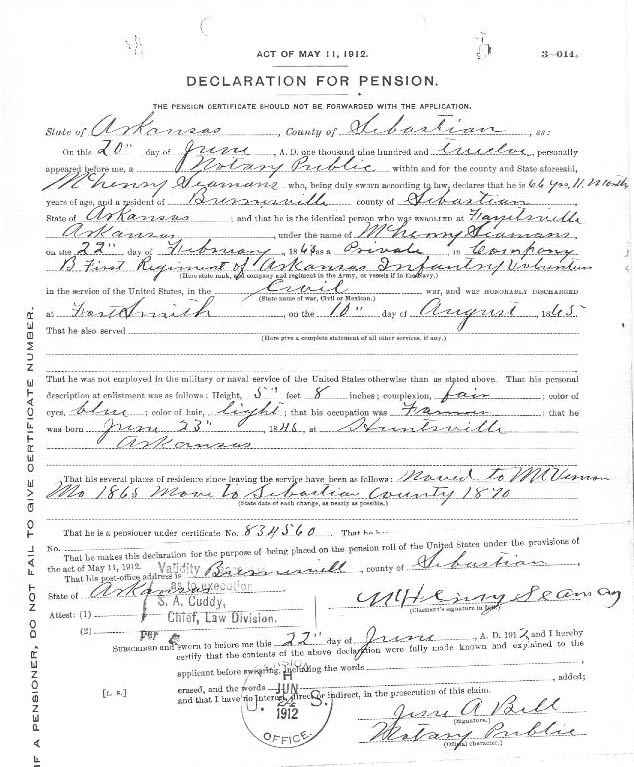 ACT OF MAY 11, 1912.
3—014.
DECLARATION FOR PENSION.
THE PENSION CERTIFICATE SHOULD NOT BE FORWARDED WITH THE APPLICATION.
State of Arkansas, County of Sebastian, ss:
On this 20" day of June, A. D. one thousand nine hundred and twelve, personally
appeared before me, a Notary Public within and for the county and State aforesaid,
McHenry Seamans who, being duly sworn according to law, declares that he is 66 yrs. 11. Months
years of age, and a resident of county of Sebastian
State of Arkansas; and that he is the identical person who was ENROLLED at
Arkansas, under the name of McHenry Seamans,
on the 22" day of February, 1863 as a Private, in Company
B First Regiment of Arkansas Infantry Volunteers
(Here state rank, and company and regiment in the Army, or vessels if in the Navy.)
in the service of the United States, in the Civil war, and was HONORABLY DISCHARGED
(State name of war, Civil or Mexican.)
at Fort Smith, on the 10" day of August, 1865
That he also served
(Here give a complete statement of all other services, if any.)
That he was not employed in the military or naval service of the United States otherwise than as stated above. That his personal
description at enlistment was as follows: Height, 5" feet 8 inches; complexion, fair; color of
eyes, blue; color of hair, light; that his occupation was Farmer; that he
was born June 23", 1845, at Huntsville
Arkansas
That his several places of residence since leaving the service have been as follows: Moved to Mt Vernon
Mo 1865 Move to Sebastian County 1870
(State date of each change, as nearly as possible.)
That he is a pensioner under certificate No. 834560. That he
No.
That he makes this declaration for the purpose of being placed on the pension roll of the United States under the provisions of
the act of May 11, 1912. Validity
That his post-office address is county of Sebastian,
State of Arkansas as to execution
McHenry Seamans
(Claimant's signature in full.)
S. A. Cuddy,
Attest: (1)
Chief, Law Division.
(2)
per
SUBSCRIBED and sworn to before me this 22" day of June, A. D. 1912, and I hereby
certify that the contents of the above declaration were fully made known and explained to the
applicant before swearing, including the words
, added;
[L. S.]
erased, and the words
and that I have no interest, direct or indirect, in the prosecution of this claim.
U. S.
JUN
1912
OFFICE.
Jesse A Bell
(Signature.)
Notary Public
(Official character.)
IF A PENSIONER, DO NOT FAIL TO GIVE CERTIFICATE NUMBER.